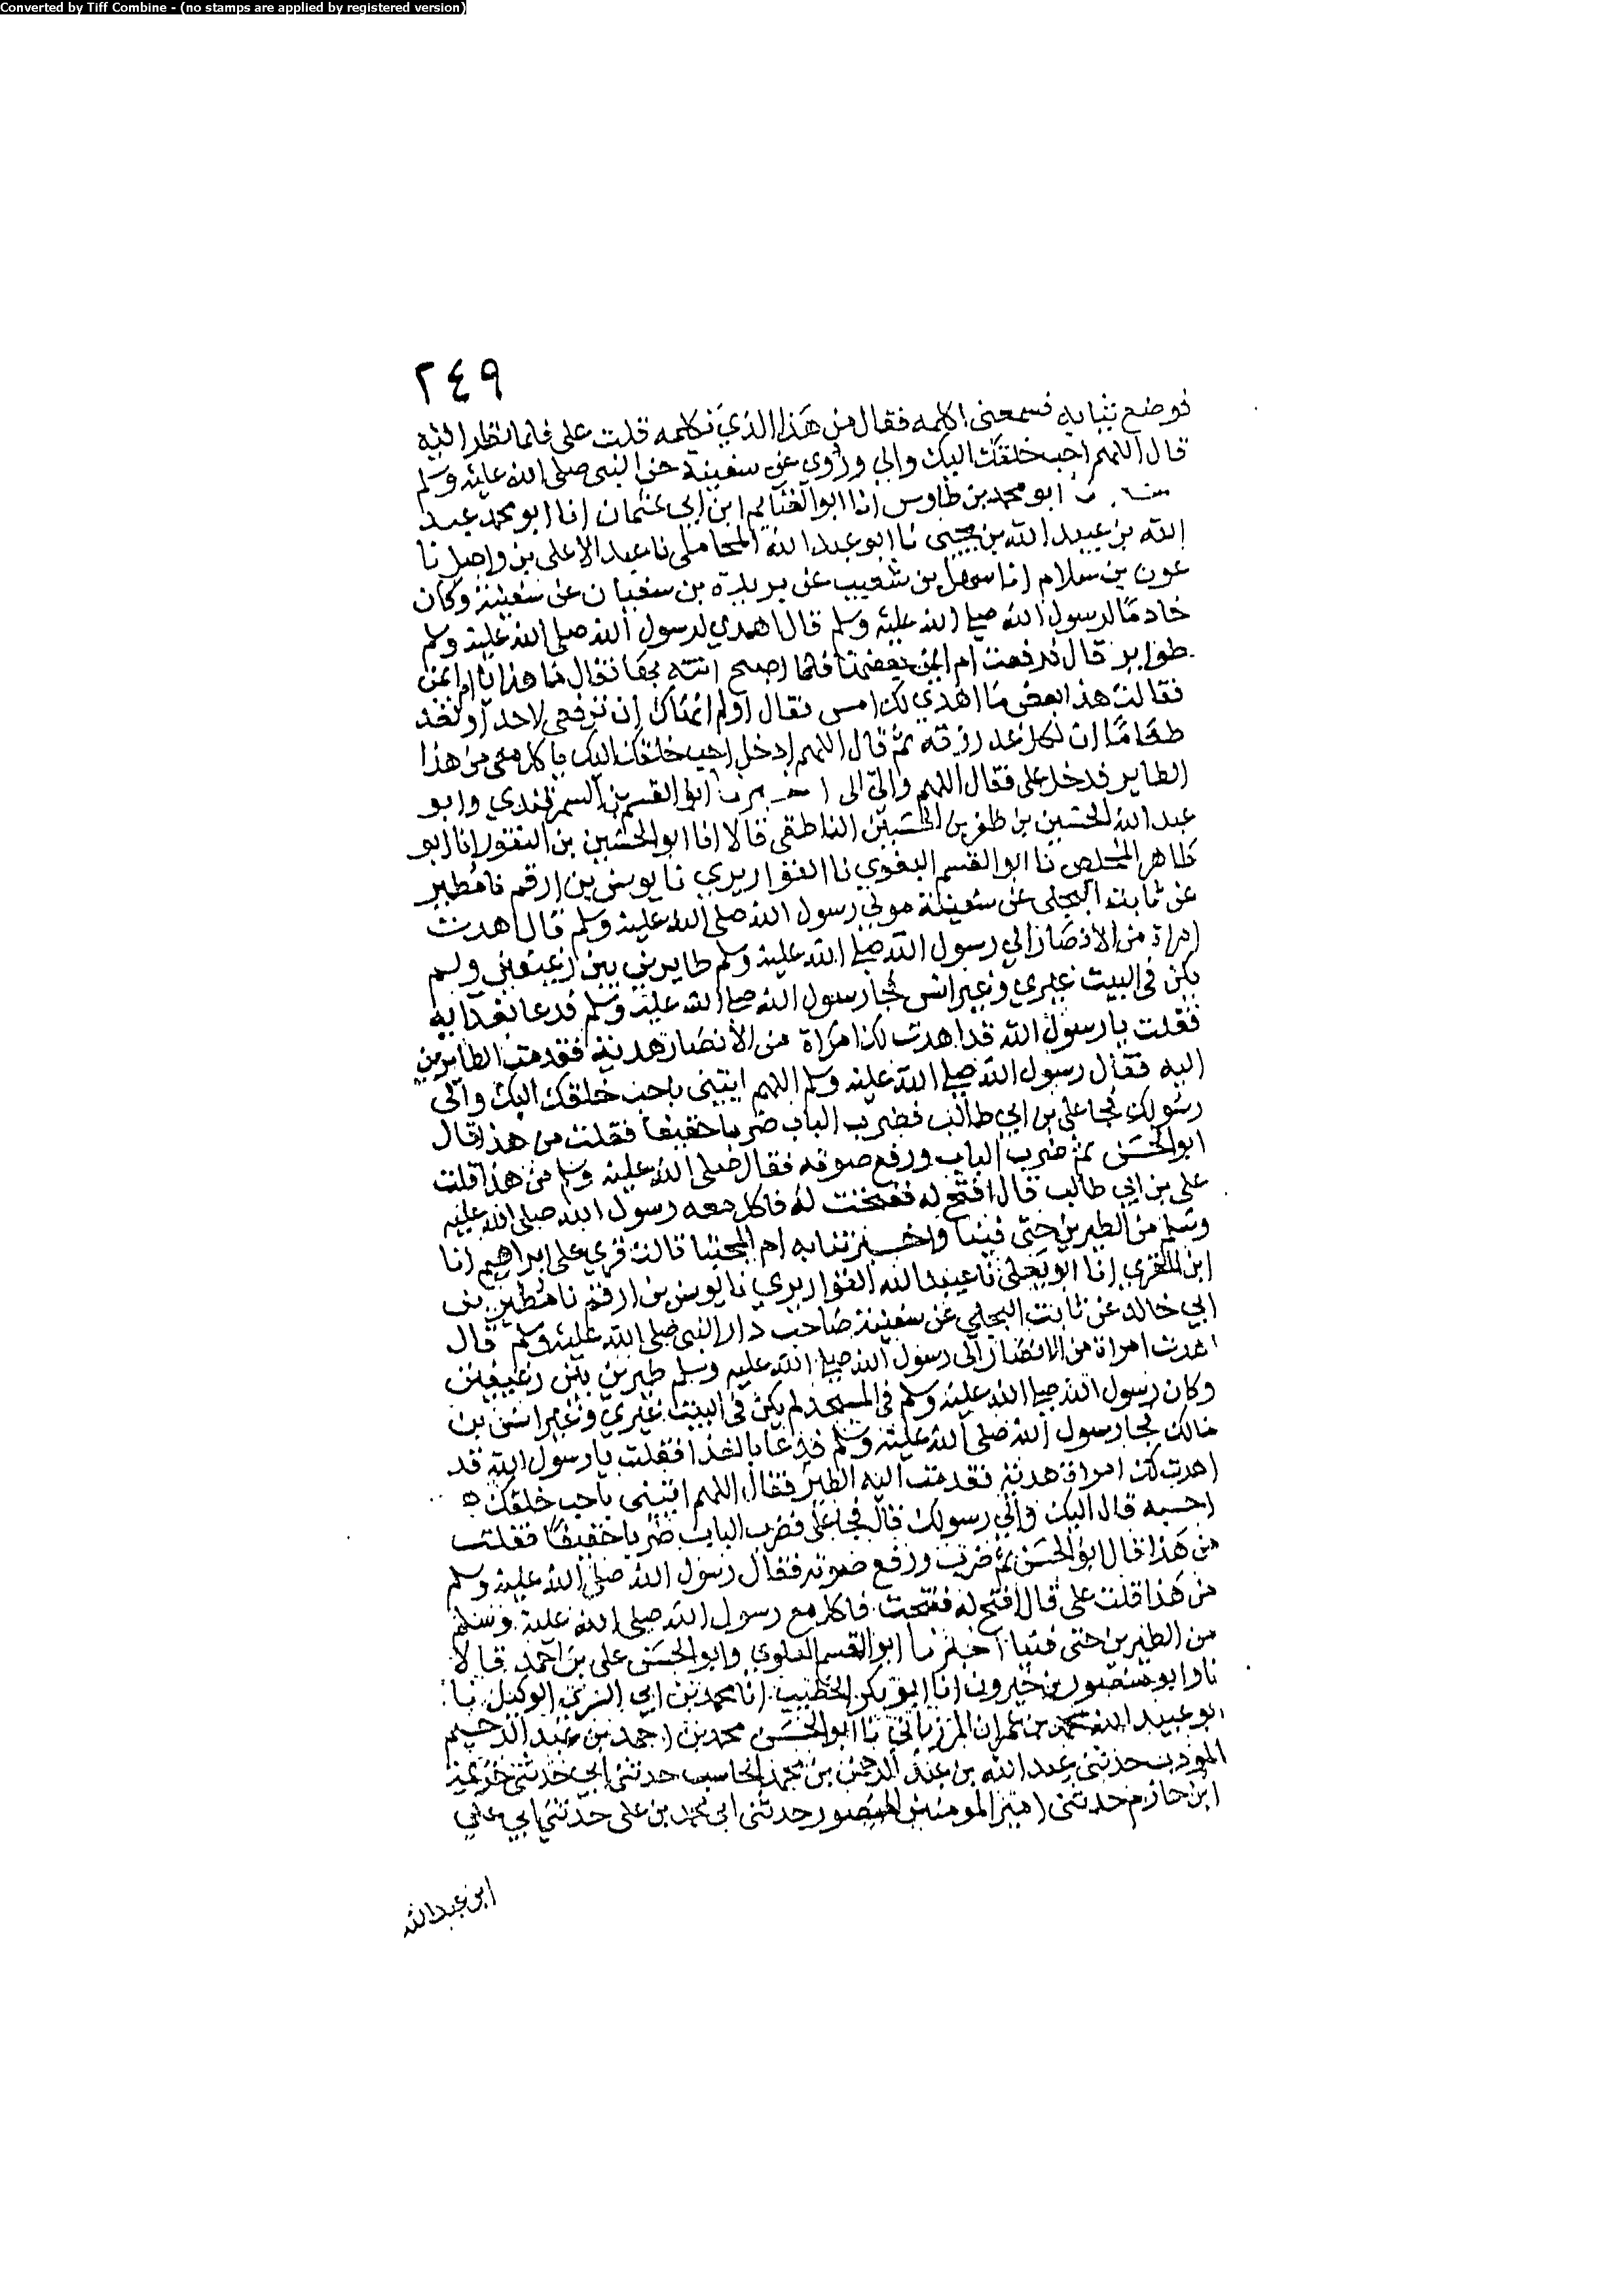 Converted by Tiff Combine - (no stamps are applied by registered version)
٢٤٩
فوضع ثيابه فسمعنى اكلمه فقال من هذا الذي تكلمه قلت على فلما نظر اليه
قال اللهم احب خلقك اليك والي وروي عن سفينة عن النبى صلى الله عليه وسلم
ابو محمد بن طاوس انا ابو الغنايم ابن ابي عثمان انا ابو محمد عبد
الله بن عبيد الله بن يحيى نا ابو عبد الله المحاملى نا عبد الاعلى بن واصل نا
عون بن سلام انا سهل بن شعيب عن بريدة بن سفيان عن سفينة وكان
خادما لرسول الله صلى الله عليه وسلم قال اهدي لرسول الله صلى الله عليه وسلم
طواير قال فرفعت ام ايمن بعضها فلما اصبح اتته بها فقال ما هذا يا ام ايمن
فقالت هذا بعض ما اهدي لك امس فقال اولم انهاك ان ترفعى لاحد او لغد
طعاما ان لكل غد رزقه ثم قال اللهم ادخل احب خلقك اليك ياكل معى من هذا
الطاير فدخل على فقال اللهم والي الى اخبرنا ابو القسم بن السمرقندي وابو
عبد الله الحسين بن ظفر بن الحسين الناطقى قالا انا ابو الحسين بن النقور انا ابو
طاهر المخلص نا ابو القسم البغوي نا القواريري نا يونس بن ارقم نا مطير
عن ثابت البجلى عن سفينة مولي رسول الله صلى الله عليه وسلم قال اهدت
امراة من الانصار الي رسول الله صلى الله عليه وسلم طايرين بين رغيفين ولم
يكن فى البيت غيري وغير انس فجا رسول الله صلى الله عليه وسلم فدعا بغدايه
فقلت يا رسول الله قد اهدت لك امراة من الانصار هدية فقدمت الطايرين
اليه فقال رسول الله صلى الله عليه وسلم اللهم ايتينى باحب خلقك اليك والى
رسولك فجا على بن ابي طالب فضرب الباب ضربا خفيفا فقلت من هذا قال
ابو الحسن ثم ضرب الباب ورفع صوته فقال صلى الله عليه وسلم من هذا قلت
على بن ابي طالب قال افتح له ففتحت له فاكل معه رسول الله صلى الله عليه
وسلم من الطيرين حتى فنيا واخبرتنا به ام المجتبا قالت قري على ابراهيم انا
ابن المقري انا ابو يعلى نا عبيد الله القواريري نا يونس بن ارقم نا مطير بن
ابي خالد عن ثابت البجلي عن سفينة صاحب دار النبى صلى الله عليه وسلم قال
اهدت امراة من الانصار الى رسول الله صلى الله عليه وسلم طيرين بين رغيفين
وكان رسول الله صلى الله عليه وسلم فى المسجد لم يكن فى البيت غيري وغير انس بن
مالك فجا رسول الله صلى الله عليه وسلم فدعا بالغدا فقلت يا رسول الله قد
اهدت لك امراة هدية فقدمت اليه الطير فقال اللهم ايتينى باحب خلقك
احسبه قال اليك والي رسولك قال فجا على فضرب الباب ضربا خفيفا فقلت
من هذا قال ابو الحسن ثم ضرب ورفع صوته فقال رسول الله صلى الله عليه وسلم
من هذا قلت على قال افتح له ففتحت فاكل مع رسول الله صلى الله عليه وسلم
من الطيرين حتى فنيا اخبرنا ابو القسم العلوي وابو الحسن على بن احمد قالا
نا وابو منصور بن خيرون انا ابو بكر الخطيب انا محمد بن ابي السري الوكيل نا
ابو عبيد الله محمد بن عمران المرزباني نا ابو الحسن محمد بن احمد بن عبد الرحيم
المودب حدثنى عبد الله بن عبد الرحمن بن محمد الحاسب حدثنى ابي حدثنى خزيمة
ابن خازم حدثنى امير المومنين المنصور حدثنى ابي محمد بن على حدثني ابي على
ابن عبد الله